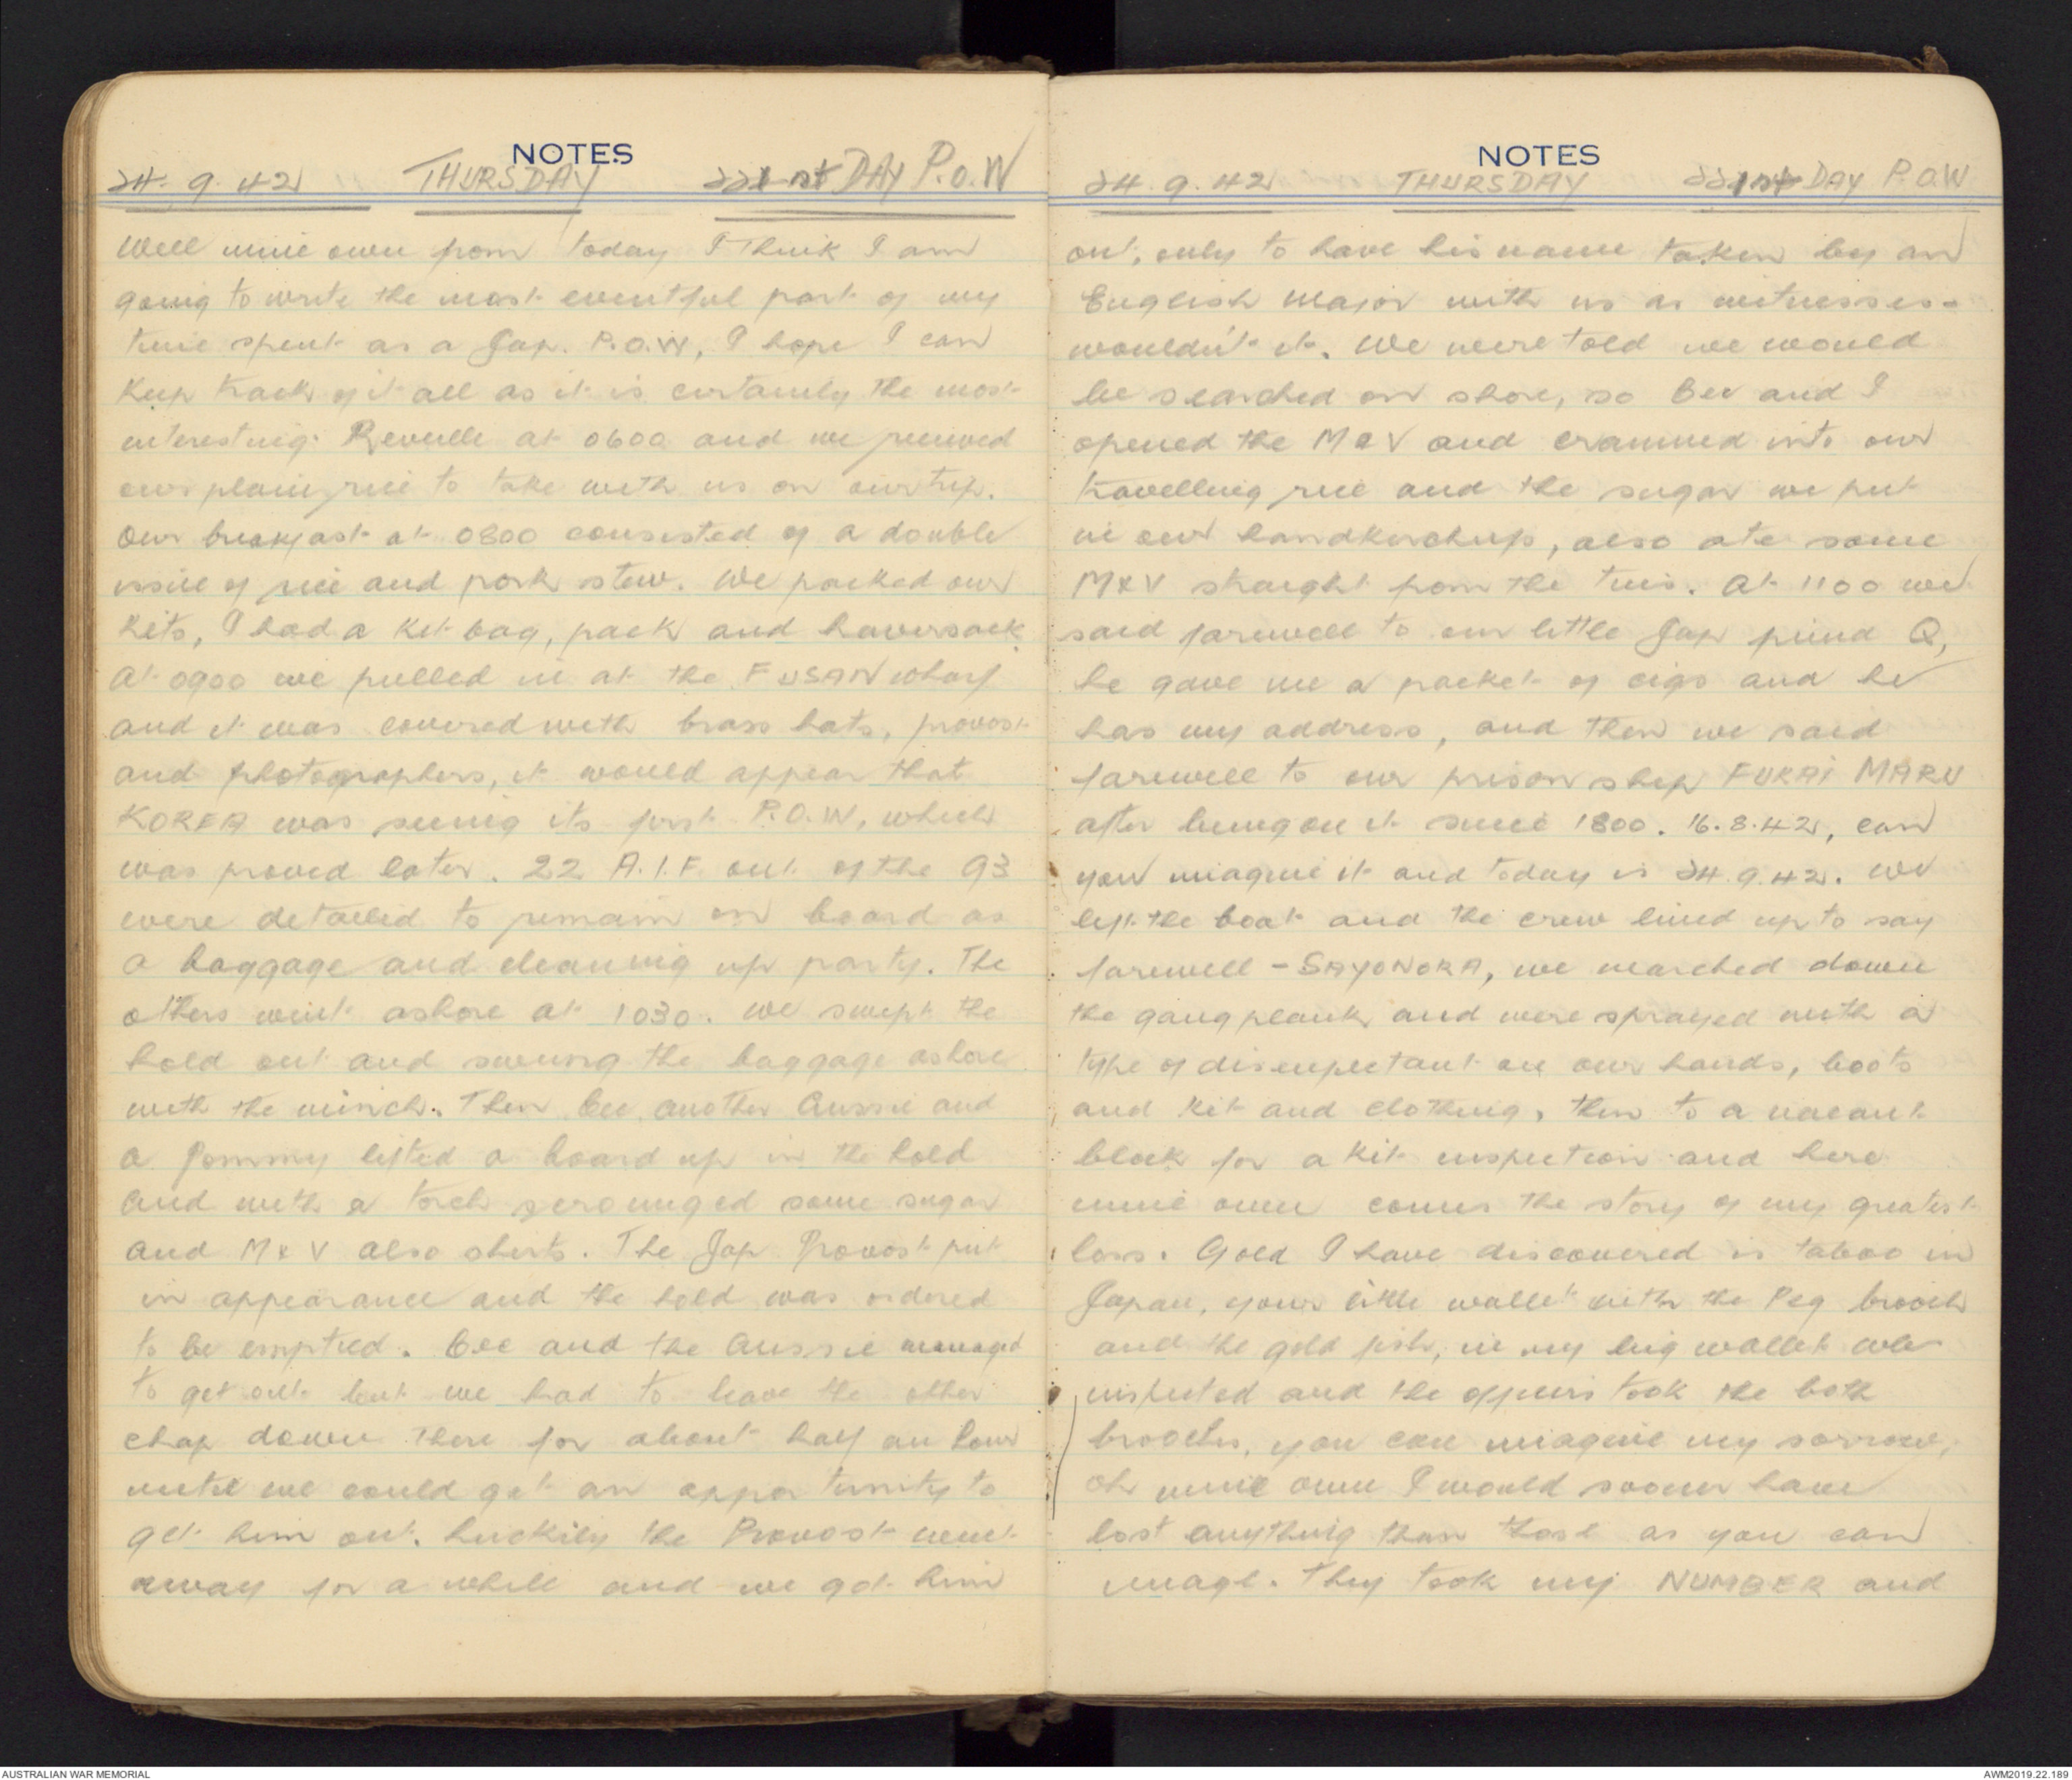 NOTES
24.9.42 THURSDAY 221st DAY P.O.W
Well mine own from today I think I am
going to write the most eventful part of my
time spent as a Jap. P.O.W, I hope I can
keep track of it all as it is certainly the most
interesting. Reveille at 0600 and we received
our plain rice to take with us on our trip.
Our breakfast at 0800 consisted of a double
issue of rice and pork stew. We packed our
kits, I had a kit bag, pack and haversack.
At 0900 we pulled in at the FUSAN wharf
and it was covered with brass hats, provost
and photographers, it would appear that
KOREA was seeing its first P.O.W, which
was proved later. 22 A.I.F. out of the 93
were detailed to remain on board as
a baggage and cleaning up party. The
others went ashore at 1030. We swept the
hold out and swung the baggage ashore
with the winch. Then Cec, another Aussie and
a Pommy lifted a board up in the hold
and with a torch scrounged some sugar
and M & V also shirts. The Jap Provost put
in appearance and the hold was ordered
to be emptied. Cec and the Aussie managed
to get out but we had to leave the other
chap down there for about half an hour
until we could get an opportunity to
get him out. Luckily the Provost went
away for a while and we got him
NOTES
24.9.42 THURSDAY 221st DAY P.O.W
out, only to have his name taken by an
English Major with us as witnesses -
wouldn't it. We were told we would
be searched on shore, so Bev and I
opened the M & V and crammed into our
travelling rice and the sugar we put
in our handkerchiefs, also ate some
M & V straight from the tins. At 1100 we
said farewell to our little Jap friend Q,
he gave me a packet of cigs and he
has my address, and then we said
farewell to our prison ship FUKAI MARU
after being on it since 1800. 16.8.42, can
you imagine it and today is 24.9.42. We
left the boat and the crew lined up to say
farewell - SAYONORA, we marched down
the gangplank and were sprayed with a
type of disenfectant on our hands, boots
and kit and clothing, then to a vacant
block for a kit inspection and here
mine own comes the story of my greatest
loss. Gold I have discovered is taboo in
Japan, your little wallet with the Peg brooch
and the gold fish, in my big wallet was
inspected and the officers took the both
brooches, you can imagine my sorrow,
oh mine own I would sooner have
lost anything than those as you can
image. They took my NUMBER and
AUSTRALIAN WAR MEMORIAL
AWM2019.22.189